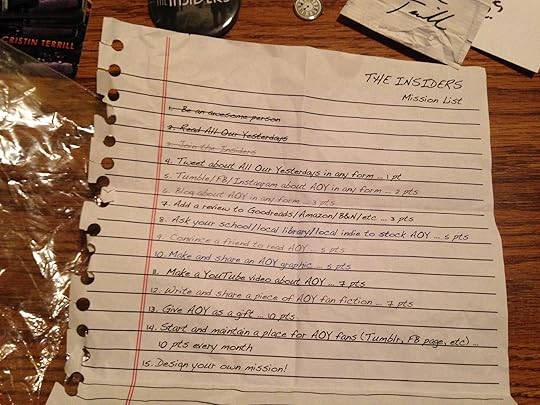 CRISTIN TERRILL
THE INSIDERS
THE INSIDERS
Mission List
1. Be an awesome person
2. Read All Our Yesterdays
3. Join the Insiders
4. Tweet about All Our Yesterdays in any form ... 1 pt
5. Tumble/FB/Instagram about AOY in any form ... 2 pts
6. Blog about AOY in any form ... 3 pts
7. Add a review to Goodreads/Amazon/B&N/etc ... 3 pts
8. Ask your school/local library/local indie to stock AOY ... 5 pts
9. Convince a friend to read AOY ... 5 pts
10. Make and share an AOY graphic ... 5 pts
11. Make a YouTube video about AOY ... 7 pts
12. Write and share a piece of AOY fan fiction ... 7 pts
13. Give AOY as a gift ... 10 pts
14. Start and maintain a place for AOY fans (Tumblr, FB page, etc) ...
10 pts every month
15. Design your own mission!